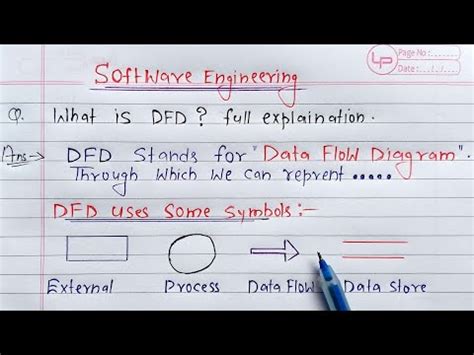 LP
Page No:
Date: / /
Software Engineering
Q. What is DFD? full explaination.
Ans→ DFD Stands for "Data Flow Diagram".
Through which we can reprent .....
DFD uses Some Symbols:-
External Process Data Flow Data Store